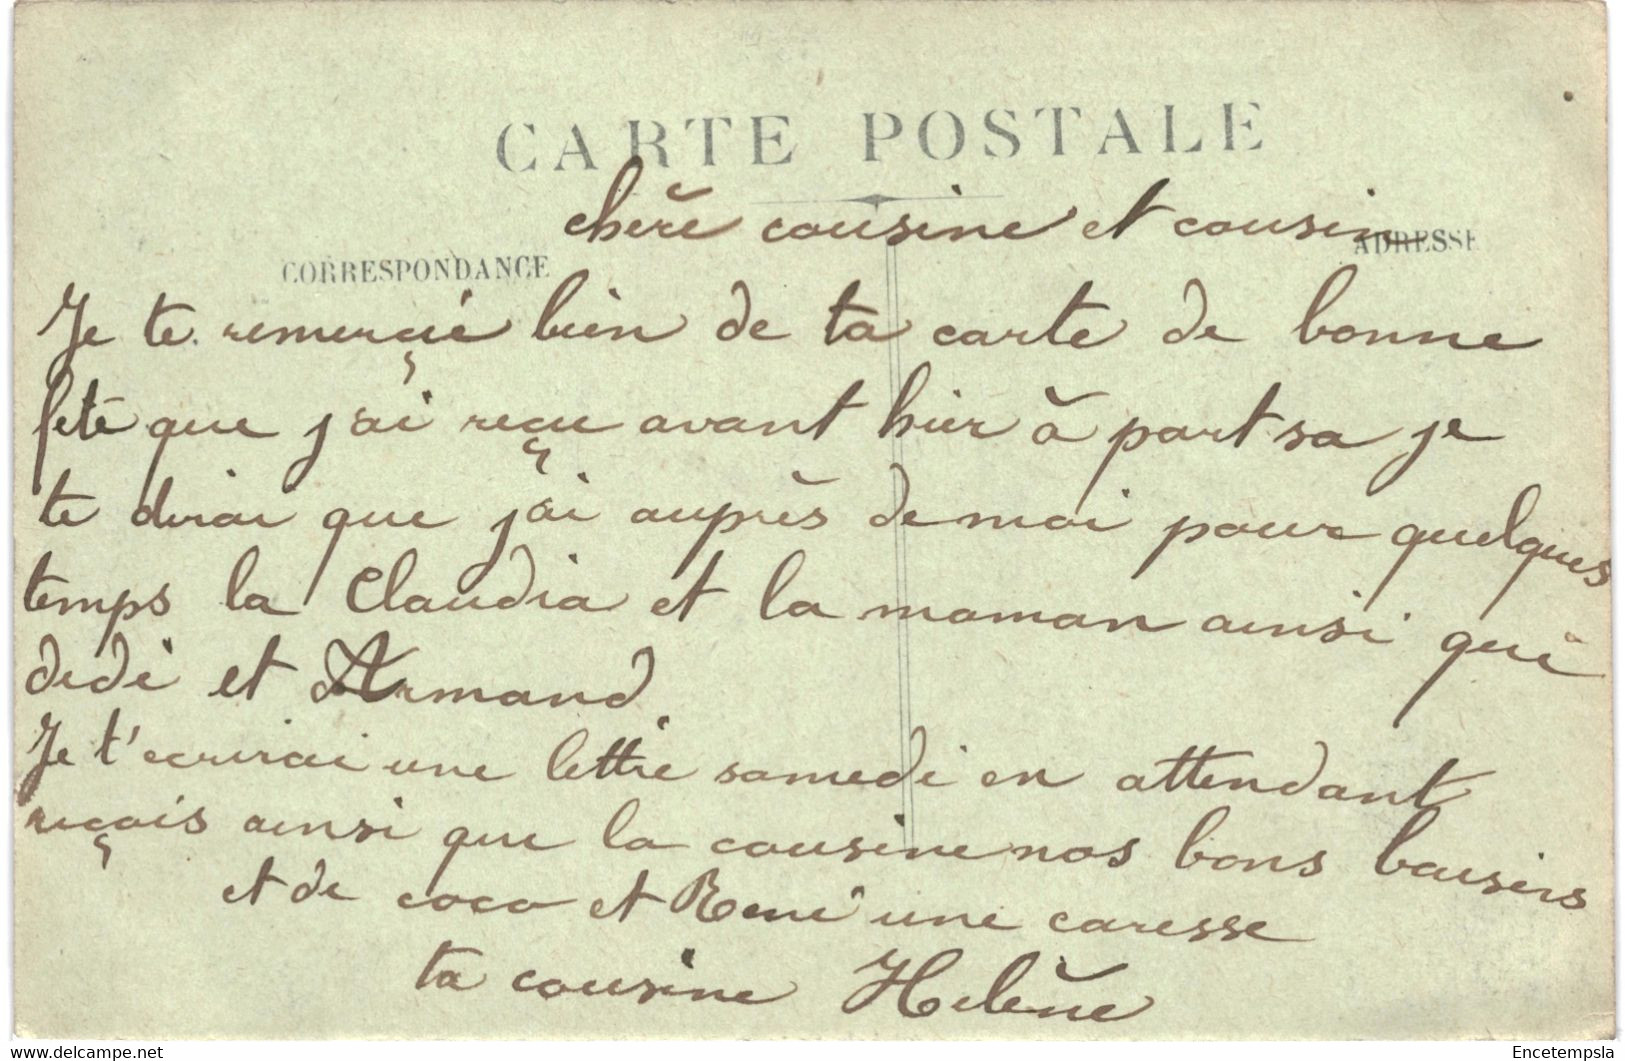 CARTE POSTALE
chère cousine et cousin
CORRESPONDANCE
ADRESSE
Je te remerçie bien de ta carte de bonne
fete que j'ai reçu avant hier à part sa je
te dirai que j'ai auprès de moi pour quelques
temps la Claudia et la maman ainsi que
dédé et Armand.
Je t'ecrirai une lettre samedi en attendant
reçois ainsi que la cousine nos bons baisers
et de coco et René une caresse
ta cousine Helène
Encetempsla